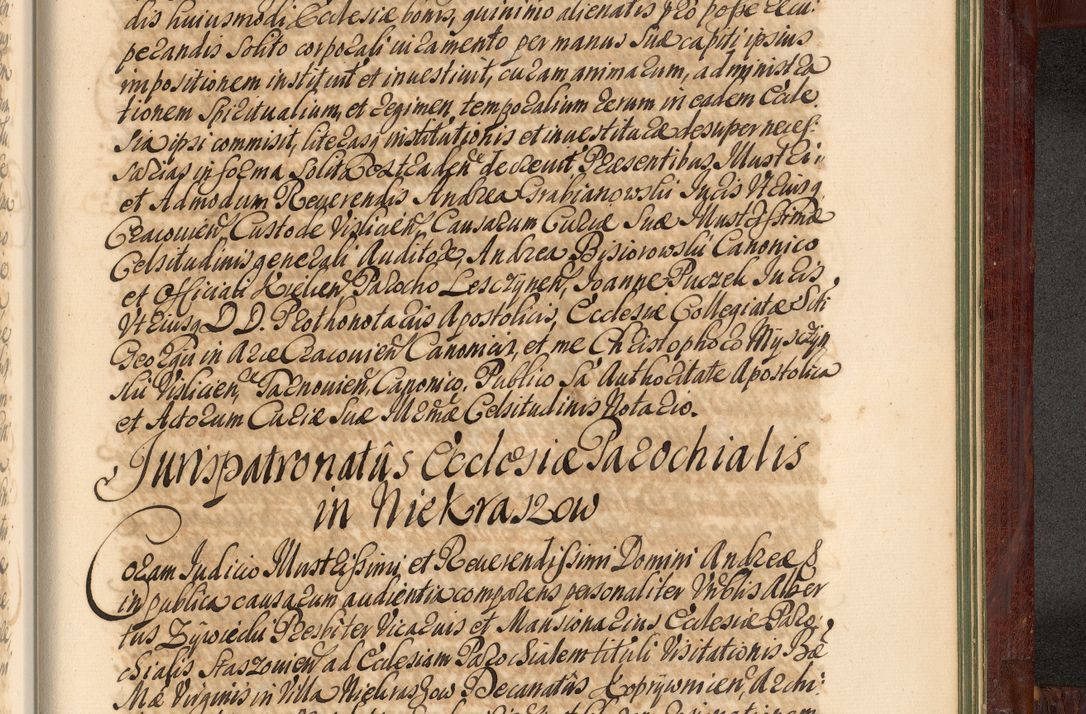 dis huiusmodi Ecclesiæ bonis, quinimo alienatis pro posse recu-
perandis solito corporali iuramento per manus suæ capiti ipsius
impositionem instituit et inuestiuit, curam animarum, administra
tionem spiritualium, et regimen temporalium rerum in eadem Eccle
sia ipsi commisit, literasq institutionis et inuestituræ desuper neces-
sarias in forma solita decreuit. Præsentibus Illustri
et Admodum Reuerendis Andrea Grabianowski Iuris Utriusq
Cracouien, Custode Vislicien, Causarum Curiæ Suæ Illustrissimæ
Celsitudinis generali Auditore, Andrea Bysiorowski Canonico
et Officiali Kielcien Parocho Lesczynen, Ioanne Puczek Iuris
Utriusq D D. Prothonotariis Apostolicis, Ecclesiæ Collegiatæ Scti
Georgii in Arce Cracouien Canonicis, et me Christophoro Mysczyn
ski Vislicien, Tarnouien, Canonico, Publico Sa Authoritate Apostolica
et Actorum Curiæ Suæ Illmæ Celsitudinis Notario.
Jurispatronatûs Ecclesiæ Parochialis
in Niekraszow
Coram Iudicio Illustrissimi et Reuerendissimi Domini Andreæ S
in publica causarum audientia comparens personaliter Vnblis Alber
tus Zÿwiecki Presbiter Vicarius et Mansionarius Ecclesiæ Paro
chialis Staszouien, ad Ecclesiam Parochialem tituli Visitationis Bæ
Mæ Virginis in Villa Niekraszow Decanatûs Koprzywnicen, Archi-